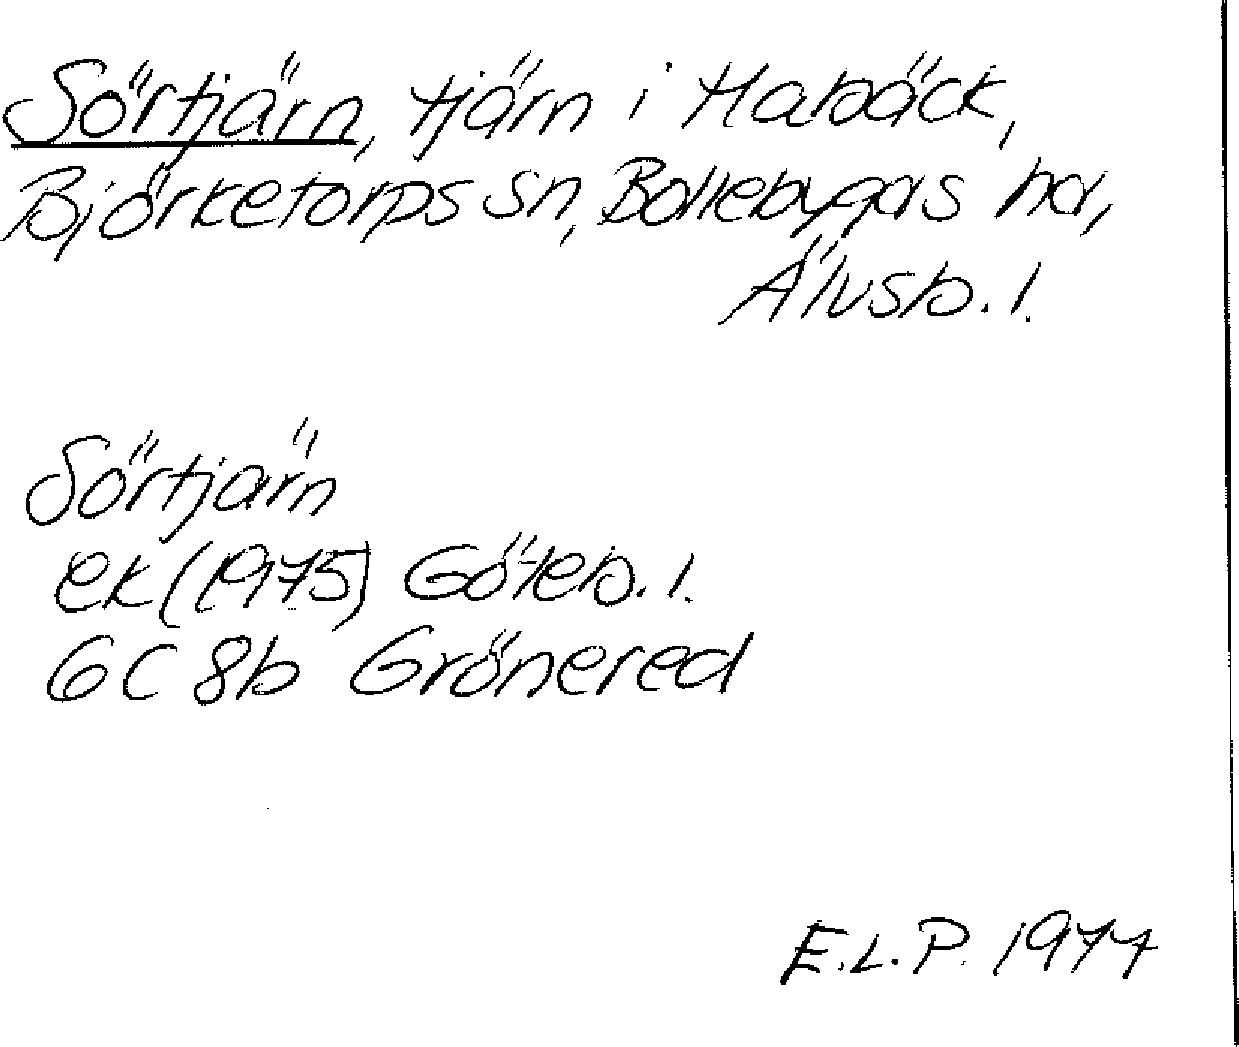 Sörtjärn, tjärn i Habäck,
Björketorps sn, Bollebygds hd,
Älvsb. l.
Sörtjärn
ek (1975) Göteb. l.
6C 8b Grönered
E.L.P. 1977